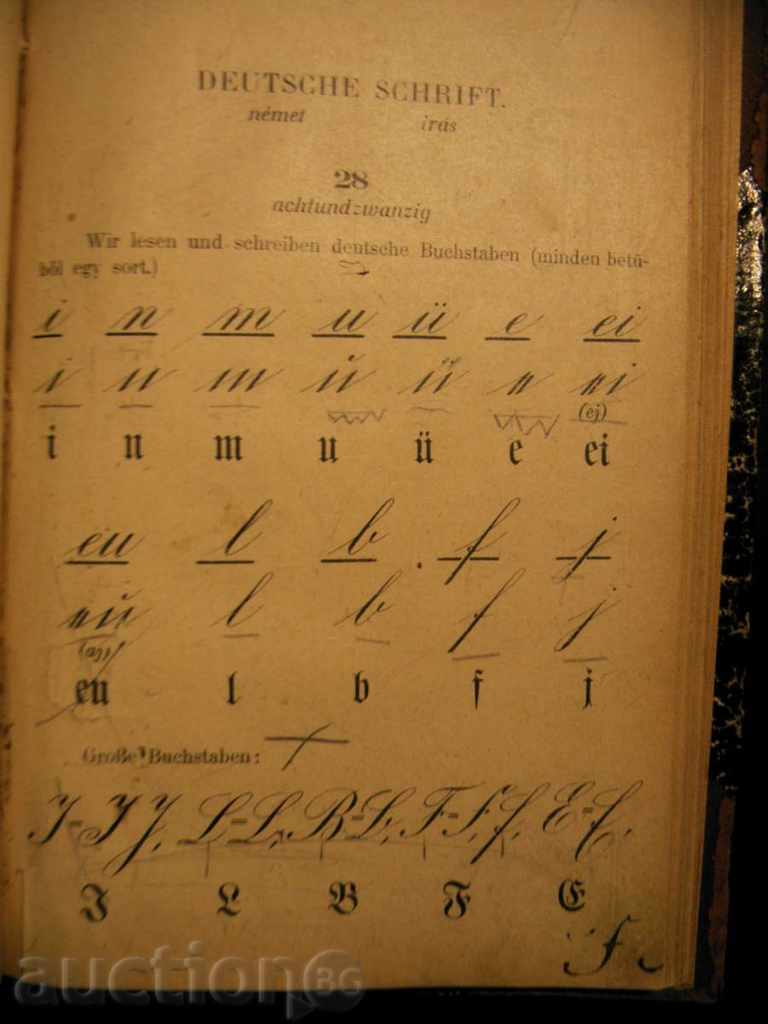 DEUTSCHE SCHRIFT.
német irás
28
achtundzwanzig
Wir lesen und schreiben deutsche Buchstaben (minden betü-
ből egy sort.)
i n m u ü e ei
i n m u ü e ei
(ej)
i n m u ü e ei
eu l b f j
eu l b f j
(ajj)
eu l b f j
Große Buchstaben:
J = J J, L = L, B = B, F = F, f, E = E,
J L B F E
auction BG